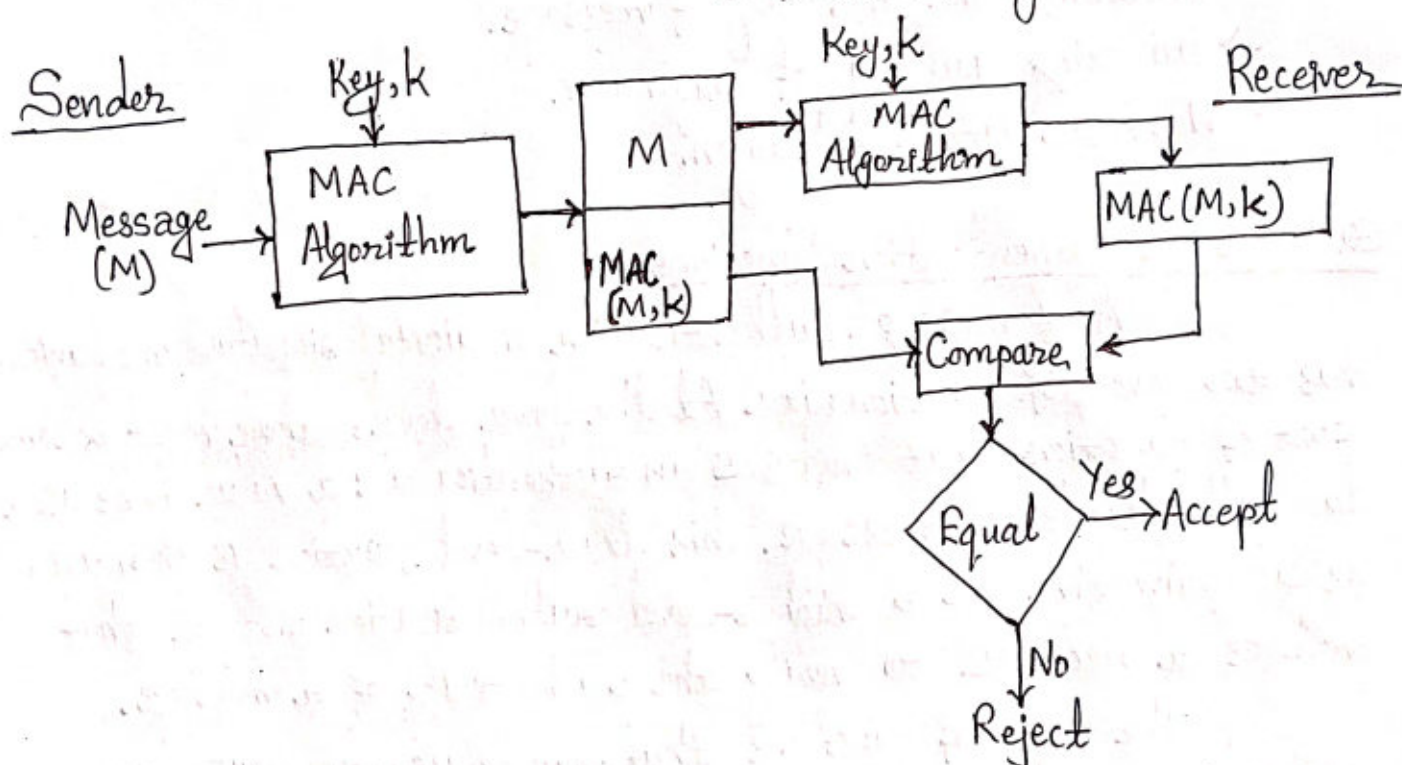 Sender
Key, k
Message
(M)
MAC
Algorithm
M
MAC
(M, k)
Key, k
MAC
Algorithm
Receiver
MAC(M, k)
Compare
Equal
Yes
Accept
No
Reject